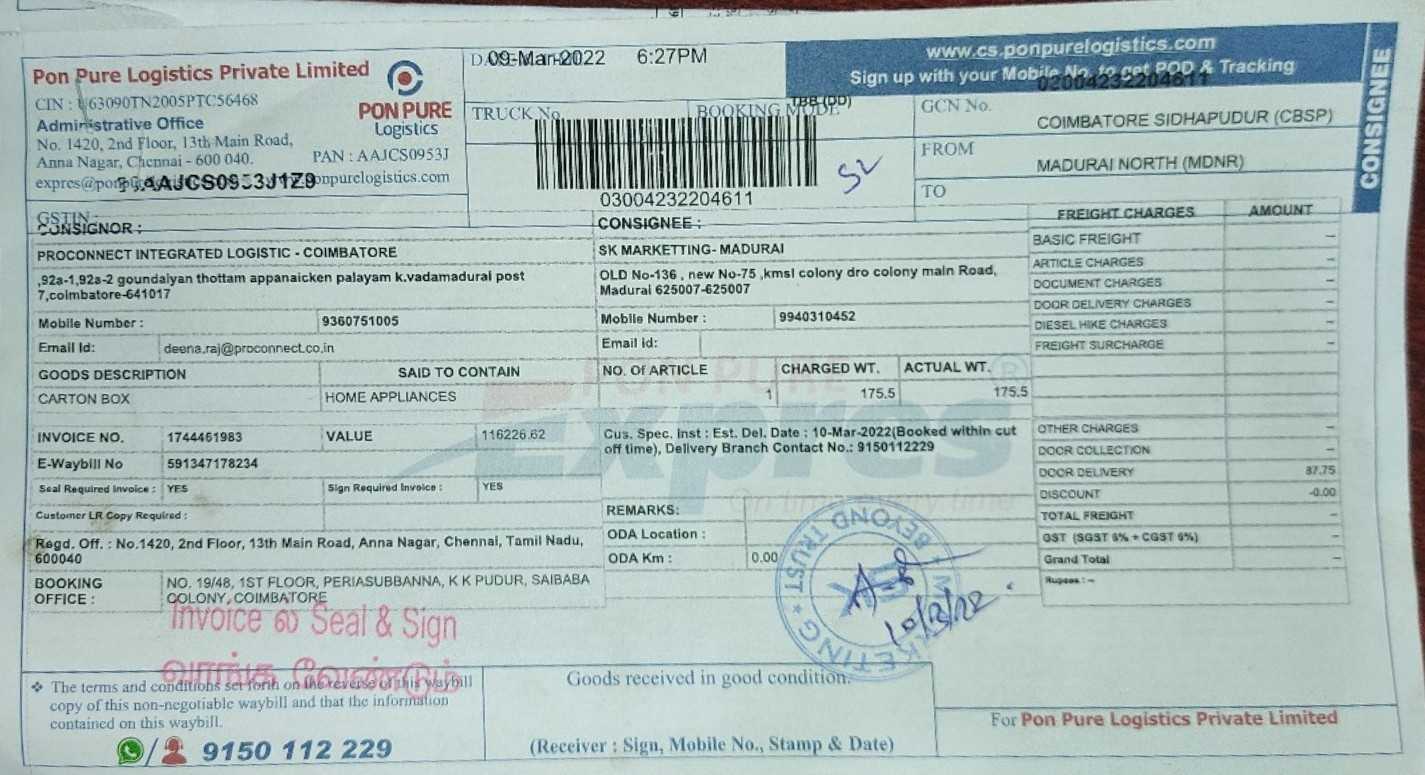 Pon Pure Logistics Private Limited
CIN : U63090TN2005PTC56468
Administrative Office
No. 1420, 2nd Floor, 13th Main Road,
Anna Nagar, Chennai - 600 040.
PAN : AAJCS0953J
PON PURE
Logistics
AAJCS0953J1Z9
GSTIN :
09-Mar-2022 6:27PM
TRUCK No.
BOOKING MODE
TBB (DD)
03004232204611
52
www.cs.ponpurelogistics.com
Sign up with your Mobile No. to get POD & Tracking
GCN No.
COIMBATORE SIDHAPUDUR (CBSP)
FROM
MADURAI NORTH (MDNR)
TO
CONSIGNEE
CONSIGNOR :
PROCONNECT INTEGRATED LOGISTIC - COIMBATORE
,92a-1,92a-2 goundaiyan thottam appanaicken palayam k.vadamadurai post
7,coimbatore-641017
Mobile Number : 9360751005
Email Id: deena.raj@proconnect.co.in
CONSIGNEE :
SK MARKETTING- MADURAI
OLD No-136 , new No-75 ,kmsl colony dro colony main Road,
Madurai 625007-625007
Mobile Number : 9940310452
Email id:
GOODS DESCRIPTION SAID TO CONTAIN NO. Of ARTICLE CHARGED WT. ACTUAL WT.
CARTON BOX HOME APPLIANCES 1 175.5 175.5
PON PURE
Expres
INVOICE NO. 1744461983 VALUE 116226.62
E-Waybill No 591347178234
Seal Required Invoice : YES Sign Required Invoice : YES
Customer LR Copy Required :
Cus. Spec. Inst : Est. Del. Date : 10-Mar-2022(Booked within cut
off time), Delivery Branch Contact No.: 9150112229
REMARKS:
ODA Location :
ODA Km : 0.00
Regd. Off. : No.1420, 2nd Floor, 13th Main Road, Anna Nagar, Chennai, Tamil Nadu,
600040
BOOKING OFFICE : NO. 19/48, 1ST FLOOR, PERIASUBBANNA, K K PUDUR, SAIBABA
COLONY, COIMBATORE
FREIGHT CHARGES AMOUNT
BASIC FREIGHT -
ARTICLE CHARGES -
DOCUMENT CHARGES -
DOOR DELIVERY CHARGES -
DIESEL HIKE CHARGES -
FREIGHT SURCHARGE -
OTHER CHARGES -
DOOR COLLECTION -
DOOR DELIVERY 87.75
DISCOUNT -0.00
TOTAL FREIGHT -
GST (SGST 6% + CGST 6%) -
Grand Total -
Rupees : -
Invoice ல் Seal & Sign
வாங்க வேண்டும்
BEYOND TRUST
SK
10/3/22
❖ The terms and conditions set forth on the reverse of this waybill
copy of this non-negotiable waybill and that the information
contained on this waybill.
9150 112 229
Goods received in good condition.
(Receiver : Sign, Mobile No., Stamp & Date)
For Pon Pure Logistics Private Limited